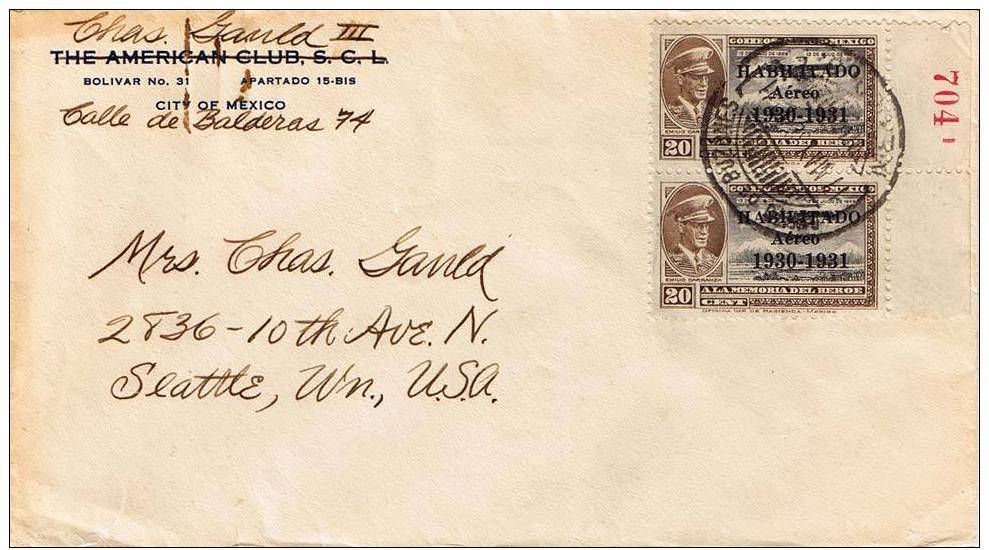 Chas. Gauld III
THE AMERICAN CLUB, S. C. L.
BOLIVAR No. 31 APARTADO 15-BIS
CITY OF MEXICO
Calle de Balderas 74
CORREOS MEXICO
HABILITADO
Aéreo
1930-1931
20
7041
CORREOS MEXICO
HABILITADO
Aéreo
1930-1931
EMILIO CARRANZA
20 A LA MEMORIA DEL HEROE
CENT
OFICINA IMP. DE HACIENDA-MEXICO
Mrs. Chas. Gauld
2836-10th Ave. N.
Seattle, Wn., U.S.A.